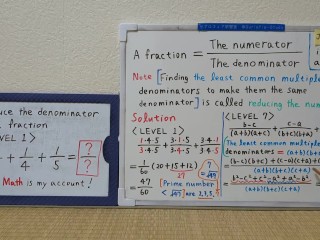 uce the denominator
a fraction
LEVEL 1 〉
+ 1/4 + 1/5 = ?/?
Math is my account !
A fraction = The numerator / The denominator
Note [Finding the least common multiple
denominators to make them the same
denominator] is called reducing the num
Solution
〈LEVEL 1〉
1・4・5/3・4・5 + 3・1・5/3・4・5 + 3・4・1/3・4・5
= 1/60 (20+15+12)
= 47/60
? = √47
[Prime number
< √47] are 2,3,5
〈LEVEL 7〉
b-c/(a+b)(a+c) + c-a/(b+c)(b+a)
The least common multiple
denominators = (a+b)(b+c
= (b-c)(b+c) + (c-a)(c+a)
(a+b)(b+c)(c+a)
= b²-c²+c²-a²+a²-b²
(a+b)(b+c)(c+a)